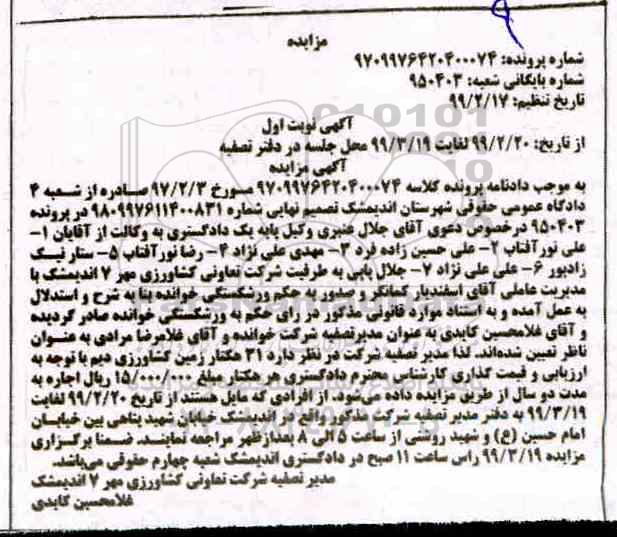 مزایده
شماره پرونده: ۹۷۰۹۹۷۶۴۲۰۴۰۰۰۷۴
شماره بایگانی شعبه: ۹۵۰۴۰۳
تاریخ تنظیم: ۹۹/۲/۱۷
آگهی نوبت اول
از تاریخ: ۹۹/۲/۲۰ لغایت ۹۹/۳/۱۹ محل جلسه در دفتر تصفیه
آگهی مزایده
به موجب دادنامه پرونده کلاسه ۹۷۰۹۹۷۶۴۲۰۴۰۰۰۷۴ مسورخ ۹۷/۲/۳ صادره از شعبه ۴
دادگاه عمومی حقوقی شهرستان اندیمشک تصمیم نهایی شماره ۹۸۰۹۹۷۶۱۱۴۰۰۸۳۱ در پرونده
۹۵۰۴۰۳ درخصوص دعوی آقای جلال عنبری وکیل پایه یک دادگستری به وکالت از آقایان ۱-
علی نورآفتاب ۲- علی حسین زاده فرد ۳- مهدی علی نژاد ۴- رضا نورآفتاب ۵- ستار نیک
زادپور ۶- علی علی نژاد ۷- جلال بابی به طرفیت شرکت تعاونی کشاورزی مهر ۷ اندیمشک با
مدیریت عاملی آقای اسفندیار کمانگر و صدور به حکم ورشکستگی خوانده بنا به شرح و استدلال
به عمل آمده و به استناد موارد قانونی مذکور در رای حکم به ورشکستگی خوانده صادر گردیده
و آقای غلامحسین کایدی به عنوان مدیرتصفیه شرکت خوانده و آقای غلامرضا مرادی به عنوان
ناظر تعیین شده‌اند. لذا مدیر تصفیه شرکت در نظر دارد ۳۱ هکتار زمین کشاورزی دیم با توجه به
ارزیابی و قیمت گذاری کارشناس محترم دادگستری هر هکتار مبلغ ۱۵/۰۰۰/۰۰۰ ریال اجاره به
مدت دو سال از طریق مزایده داده می‌شود. از افرادی که مایل هستند از تاریخ ۹۹/۲/۲۰ لغایت
۹۹/۳/۱۹ به دفتر مدیر تصفیه شرکت مذکور واقع در اندیمشک خیابان شهید پناهی بین خیابان
امام حسین (ع) و شهید روشنی از ساعت ۵ الی ۸ بعدازظهر مراجعه نمایند. ضمنا برگزاری
مزایده ۹۹/۳/۱۹ راس ساعت ۱۱ صبح در دادگستری اندیمشک شعبه چهارم حقوقی می‌باشد.
مدیر تصفیه شرکت تعاونی کشاورزی مهر ۷ اندیمشک
غلامحسین کایدی